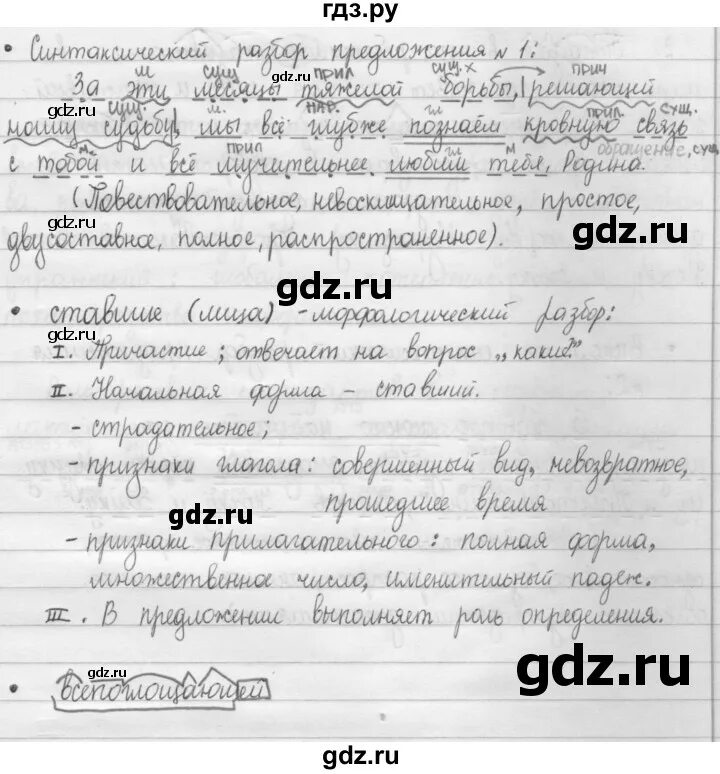 гдз.ру
• Синтаксический разбор предложения №1:
м сущ прил сущ. х прич
За эти месяцы тяжелой борьбы, решающей
сущ. м. нар. гл прил. сущ.
нашу судьбу, мы всё глубже познаём кровную связь
м. прил гл м обращение, сущ
с тобой и всё мучительнее любим тебя, Родина.
(Повествовательное, невосклицательное, простое,
двусоставное, полное, распространенное).
gdz.ru
gdz.ru
• ставшие (лица) - морфологический разбор:
I. Причастие; отвечает на вопрос „какие?"
II. Начальная форма - ставший.
- страдательное;
- признаки глагола: совершенный вид, невозвратное,
прошедшее время
gdz.ru
- признаки прилагательного: полная форма,
множественное число, именительный падеж.
III. В предложении выполняет роль определения.
gdz.ru
gdz.ru
• всепоглощающей
gdz.ru